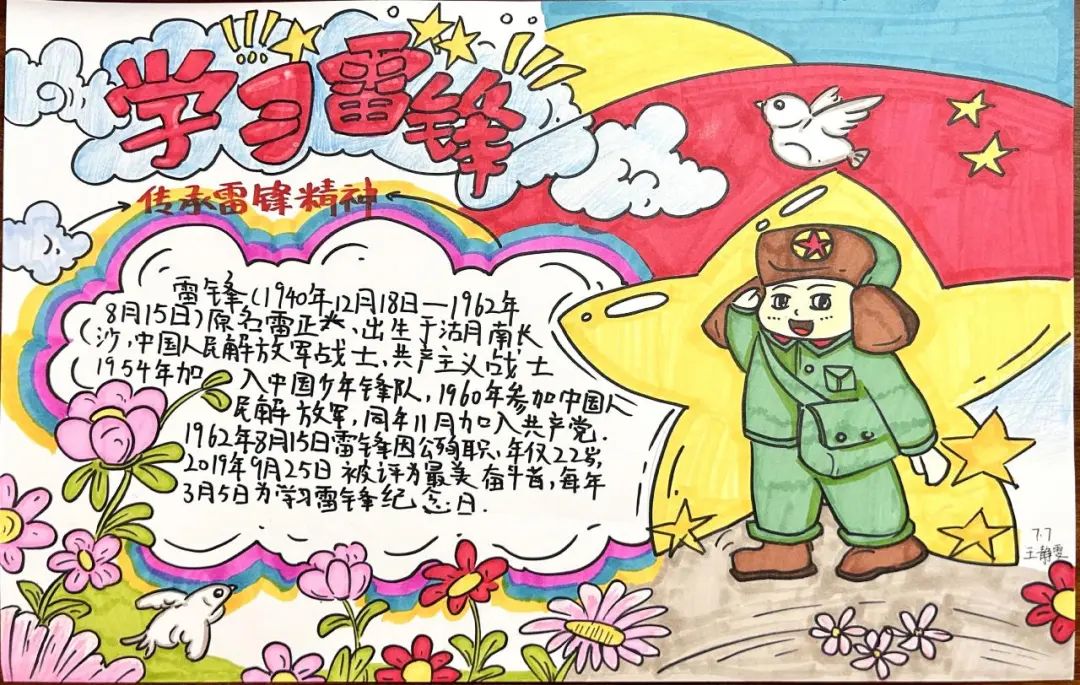 学习雷锋
传承雷锋精神
雷锋(1940年12月18日—1962年
8月15日)原名雷正兴、出生于湖南长
沙,中国人民解放军战士,共产主义战士
1954年加入中国少年锋队,1960年参加中国人
民解放军,同年11月加入共产党.
1962年8月15日雷锋因公殉职、年仅22岁,
2019年9月25日被评为最美奋斗者,每年
3月5日为学习雷锋纪念日.
7.7
王静雯